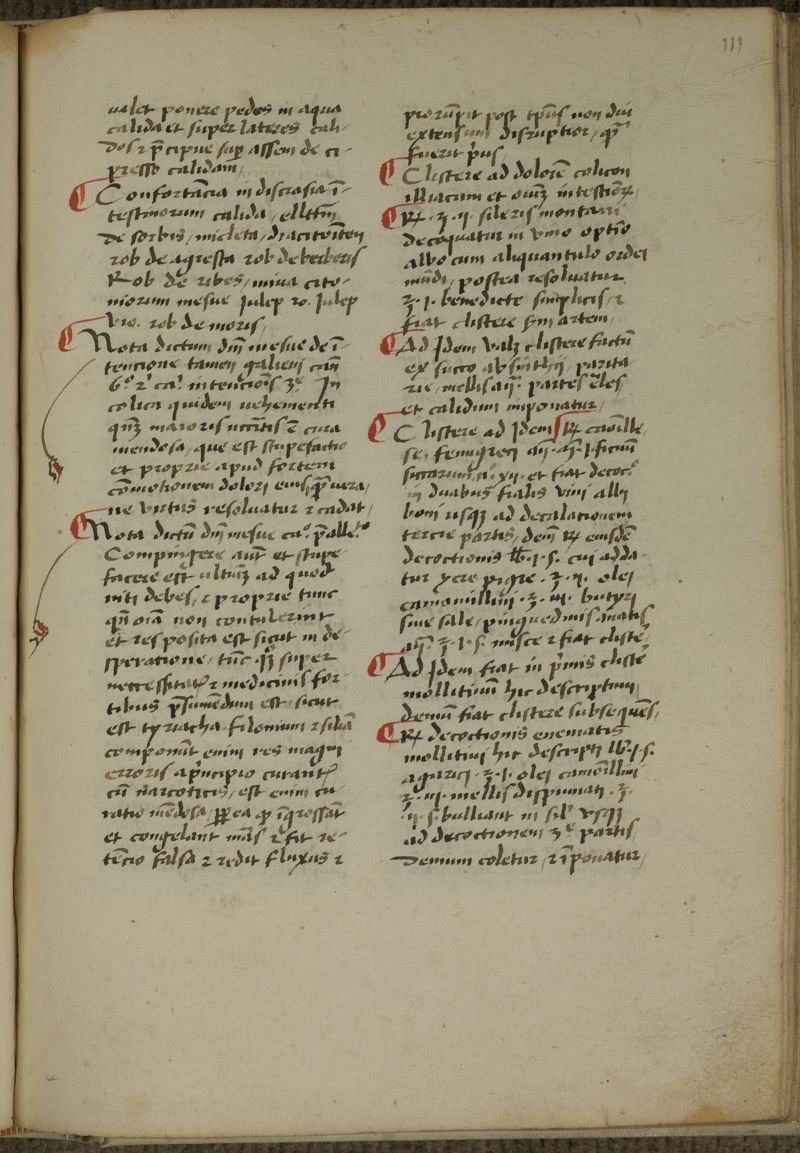 111
valet ponere pedes in aqua
calida et super lateres cali-
dos ⁊ p̄cipue sup̄ assem de ci-
presso calidam /
¶ Confortācia in discrasia ī-
testinorum calida / ell̄tm̄
de sorbis / micleta /
rob de agresta rob de berberis
Rob de ribes / miua cito-
niorum mesue Julep ro. Julep
vio. rob de moris /
¶ Nota dictum dn̄i mesue de ī-
tencione tamen galieni can̄
6º ⁊ caº intencōis 3e In
colica quidem vehementi
maioris cura
mendosa / que est stupefactio
et proprie apud fortem
cōmotionem dolori eius
ne virtus resoluatur ⁊ cadat /
¶ Nota dictū dn̄i mesue caº p̄alleº
Compingere aut̄ et stupe-
facere est vltīm ad quod
niti debes / ⁊ proprie tunc
qn̄ oīa non contulerint
et res posita est sicut in de-
speratione / tūc super
⁊ medicinis for-
tibus p̄sumēdum est / sicut
est tyriacha filonium ⁊ silia
componūt enim res magni
erroris a principio curant
cū narcoticis / est enim cu-
ratio mēdosa / ea īgrossāt
et congelant mās ⁊ fit re-
tēcio falsa ⁊ redit fluxus ⁊
prorūpit post tp̄us non diu
extensum disruptior /
fuerit p̄us
¶ Clistere ad dolorē colicon
illiacum et oīum intestiōr
¶ ℞. ʒ. ij. sileris montani
decoquatur in vino optīo
albo cum aliquantulo ordei
mūdi / postea resoluatur
ʒ. j. benedicte simplicis / ⁊
fiat clistere s̄m artem /
¶ Ad Idem valꝫ clistere factū
ex succo absinthij / parita-
rie / mellis an̄. partes eq̄les
et calidum imponatur /
¶ Clistere ad Idem ℞ camille
se. fenugreci an̄. j. ficuū
siccarum nº. xij. et fiat decocº
in duabus fialis vini albi
boni vsqꝫ ad decalationem
tercie partis / demū ℞ eiusdē
decoctionis lb. j. s. cui adda-
tur yere pigre. ʒ. ij. olei
camomillini. ʒ. iij. butyri
sine sale / pinguedinis anatis
an̄. ʒ. j. s. misce ⁊ fiat clistē /
¶ Ad Idem fiat in p̄mis clistē
mollitiuū hic descriptum
demū fiat clistere subsequēs /
¶ ℞ decoctionis enematis
mollitiui hic descripti lb. j. s.
agarici. ʒ. j. olei camōillini
ʒ. iij. mellis dispumati. ʒ.
ij. s. bulliant in silº vsqꝫ
ad decoctionem 3e partis
demum coletur / ⁊ īponatur /